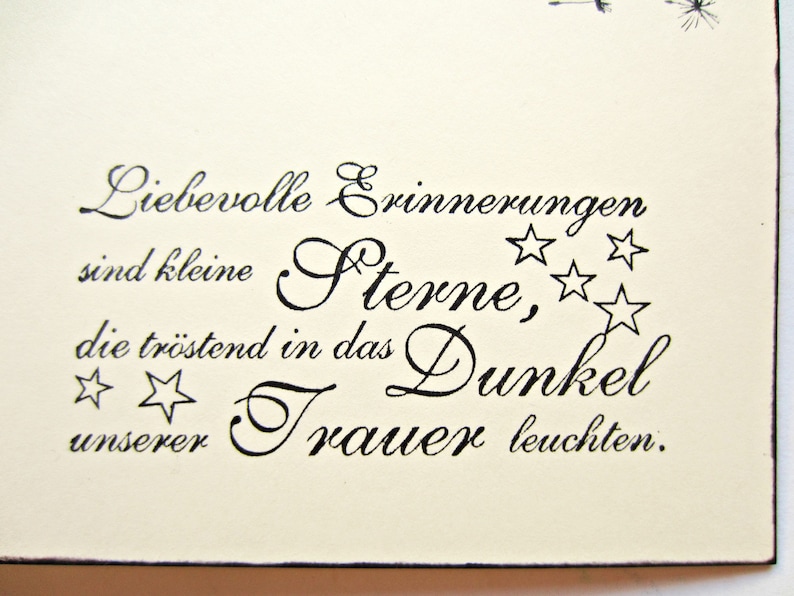 Liebevolle Erinnerungen
sind kleine Sterne,
die tröstend in das Dunkel
unserer Trauer leuchten.